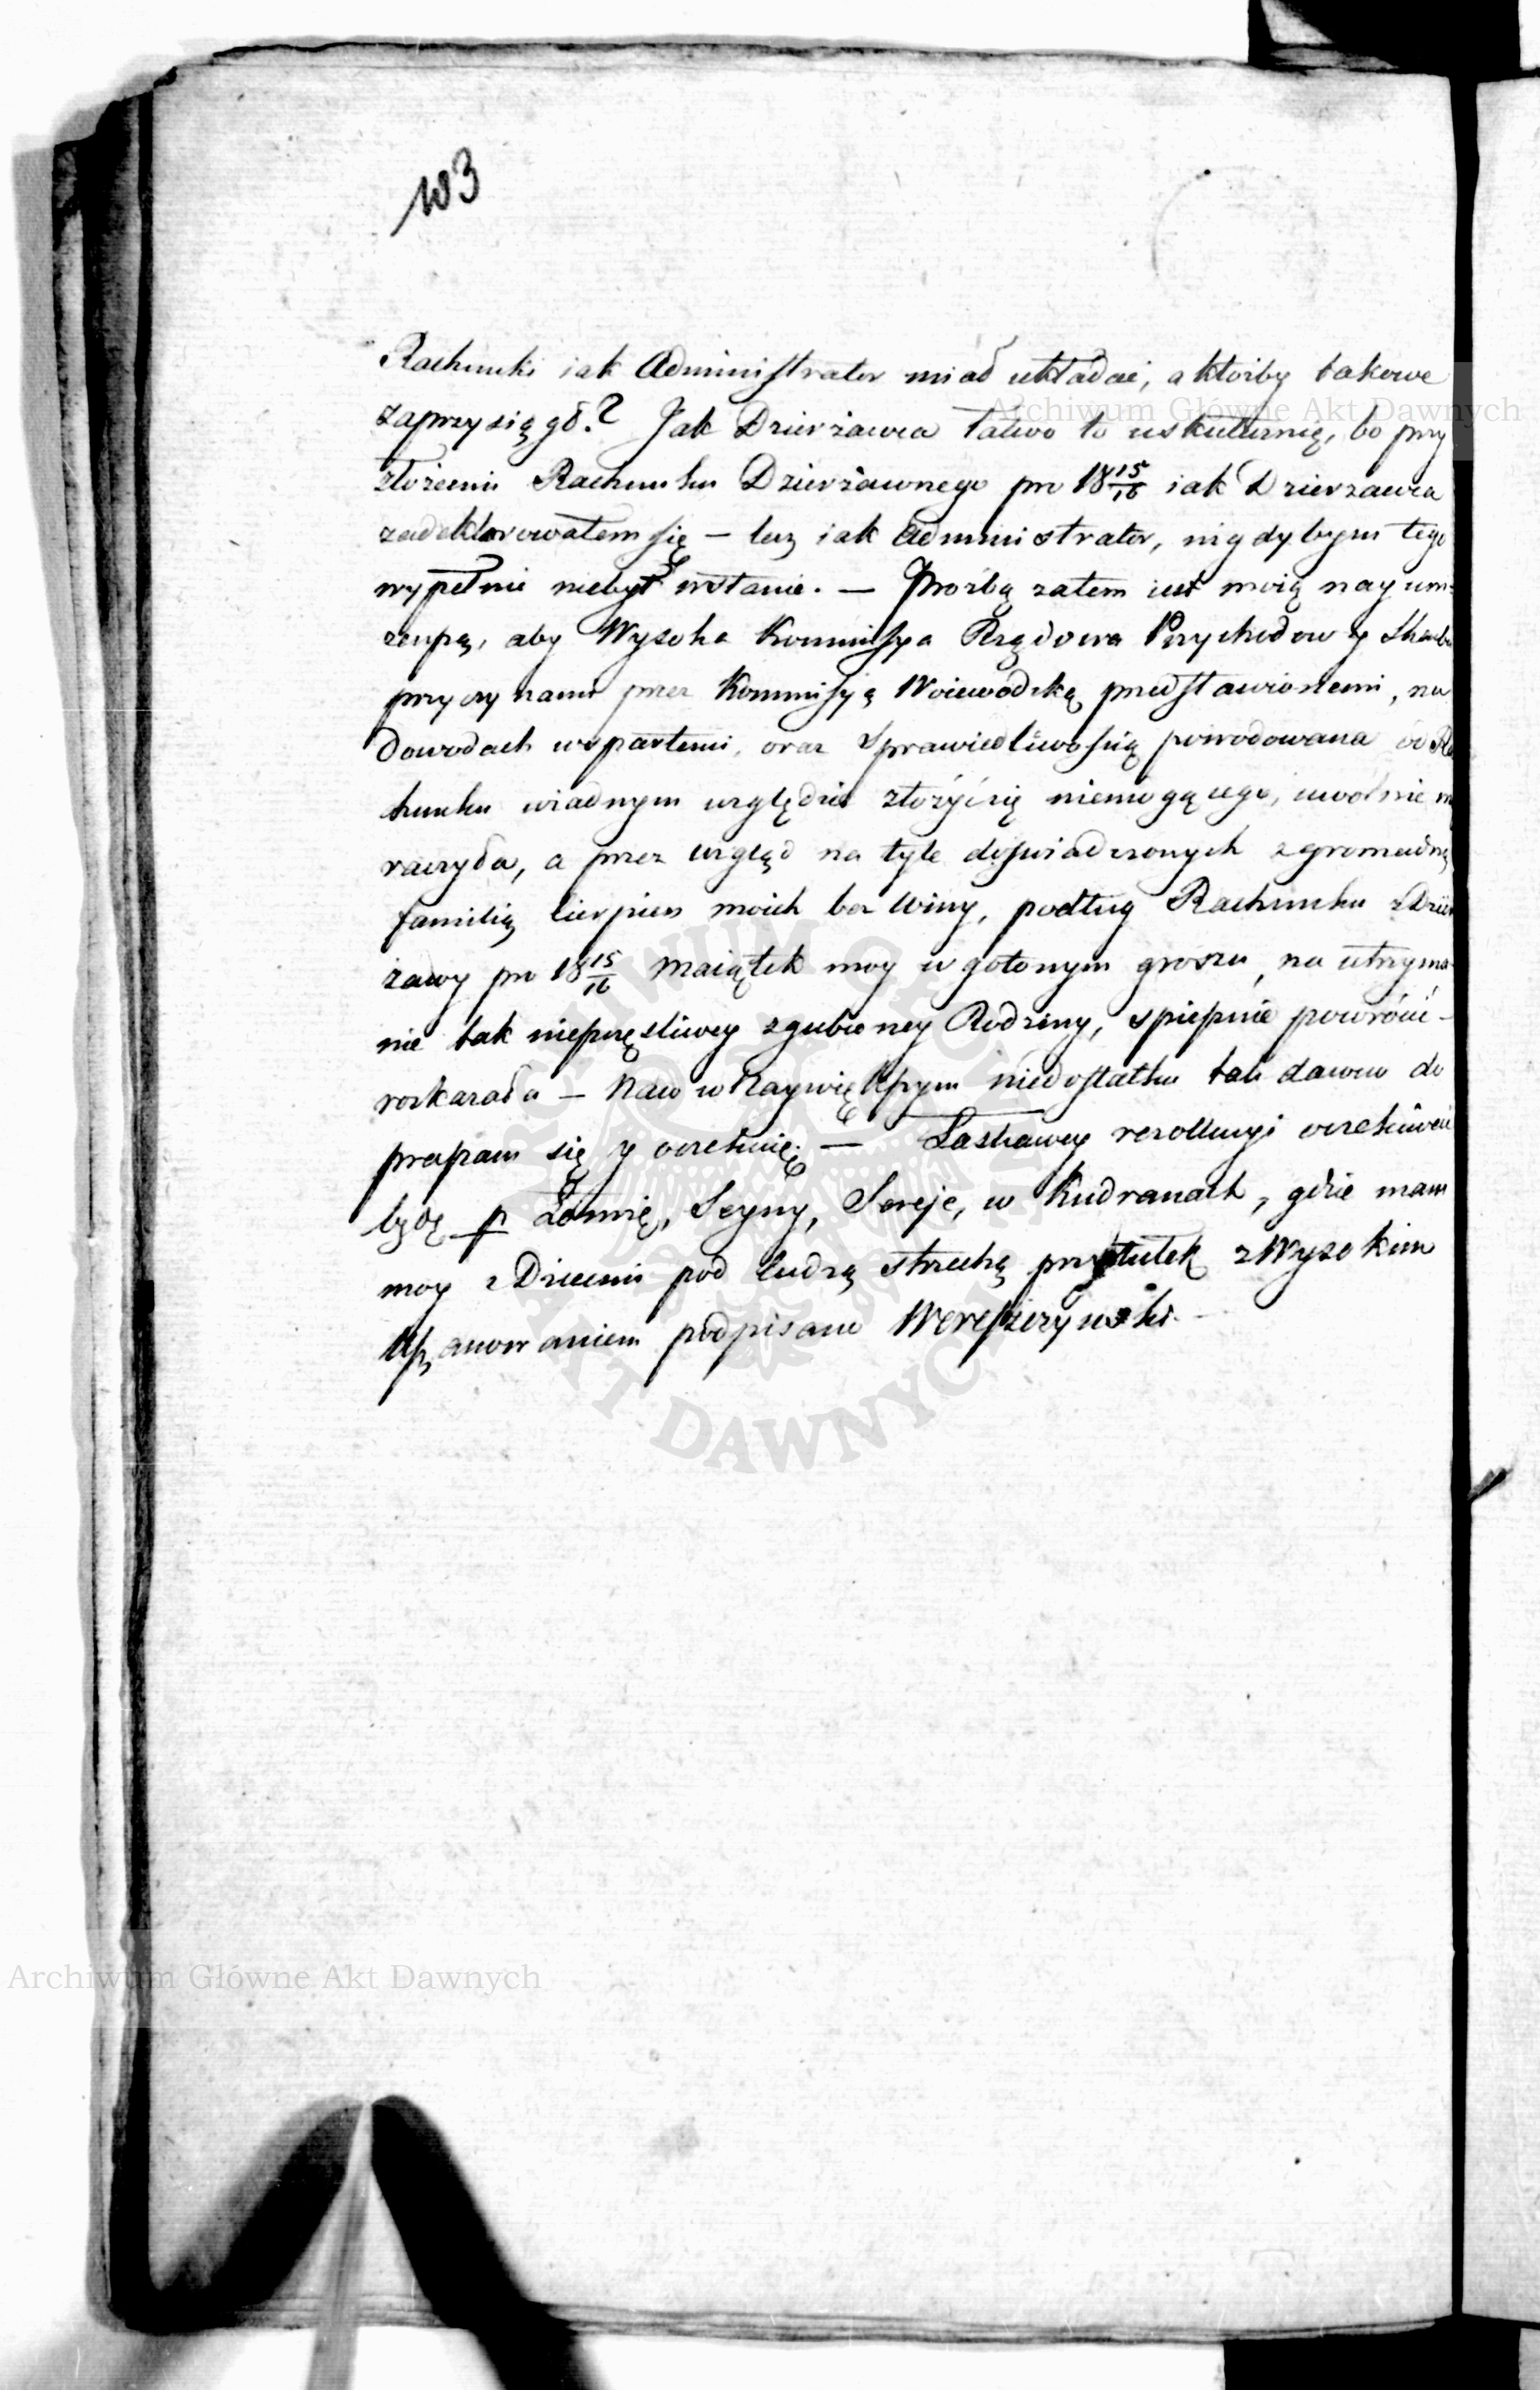 103
Rachunki iak Administrator miał układać, a ktoiby takowe
zaprzysiągł? Jak Dzierżawca łatwo to uskutecznię, bo przy
złożeniu Rachunku Dzierżawnego pro 18 15/16 iak Dzierzawca
zadeklarowałem się – lecz iak Administrator, nigdybym tego
wypełnić niebył wstanie. – Prośbą zatem iest moią nayum-
, aby Wysoka Kommissya Rządowa Przychodow y Skarbu
przyczynami przez Kommissyą Woiewodzką przedstawionemi, na
dowodach wspartemi, oraz Sprawiedliwością powodowana od Ra
chunku wiadnym względzie złożyć się niemogącego, uwolnić mię
raczyła, a przez wzgląd na tyle doświadczonych z gromadną
familią cierpień moich bez winy, podług Rachunku z Dzier
żawy pro 18 15/16 Maiątek moy w gotowym groszu, na utrzyma-
nie tak nieszczęśliwey zgubioney Rodziny, spiesznie powrócić –
rozkazała – Naw w Naywiększym niedostatku tak dawno do
praszam się y oczekuię. – Łaskawey rezolucyi oczekiwać
będę p Łomżę, Seyny, Sereje, w Kudranach, gdzie mam
moy z Dziećmi pod cudzą strzechą przytułek z Wysokim
Uszanowaniem podpisano Wereszczyński. –
Archiwum Główne Akt Dawnych
ARCHIWUM GŁÓWNE AKT DAWNYCH
Archiwum Główne Akt Dawnych